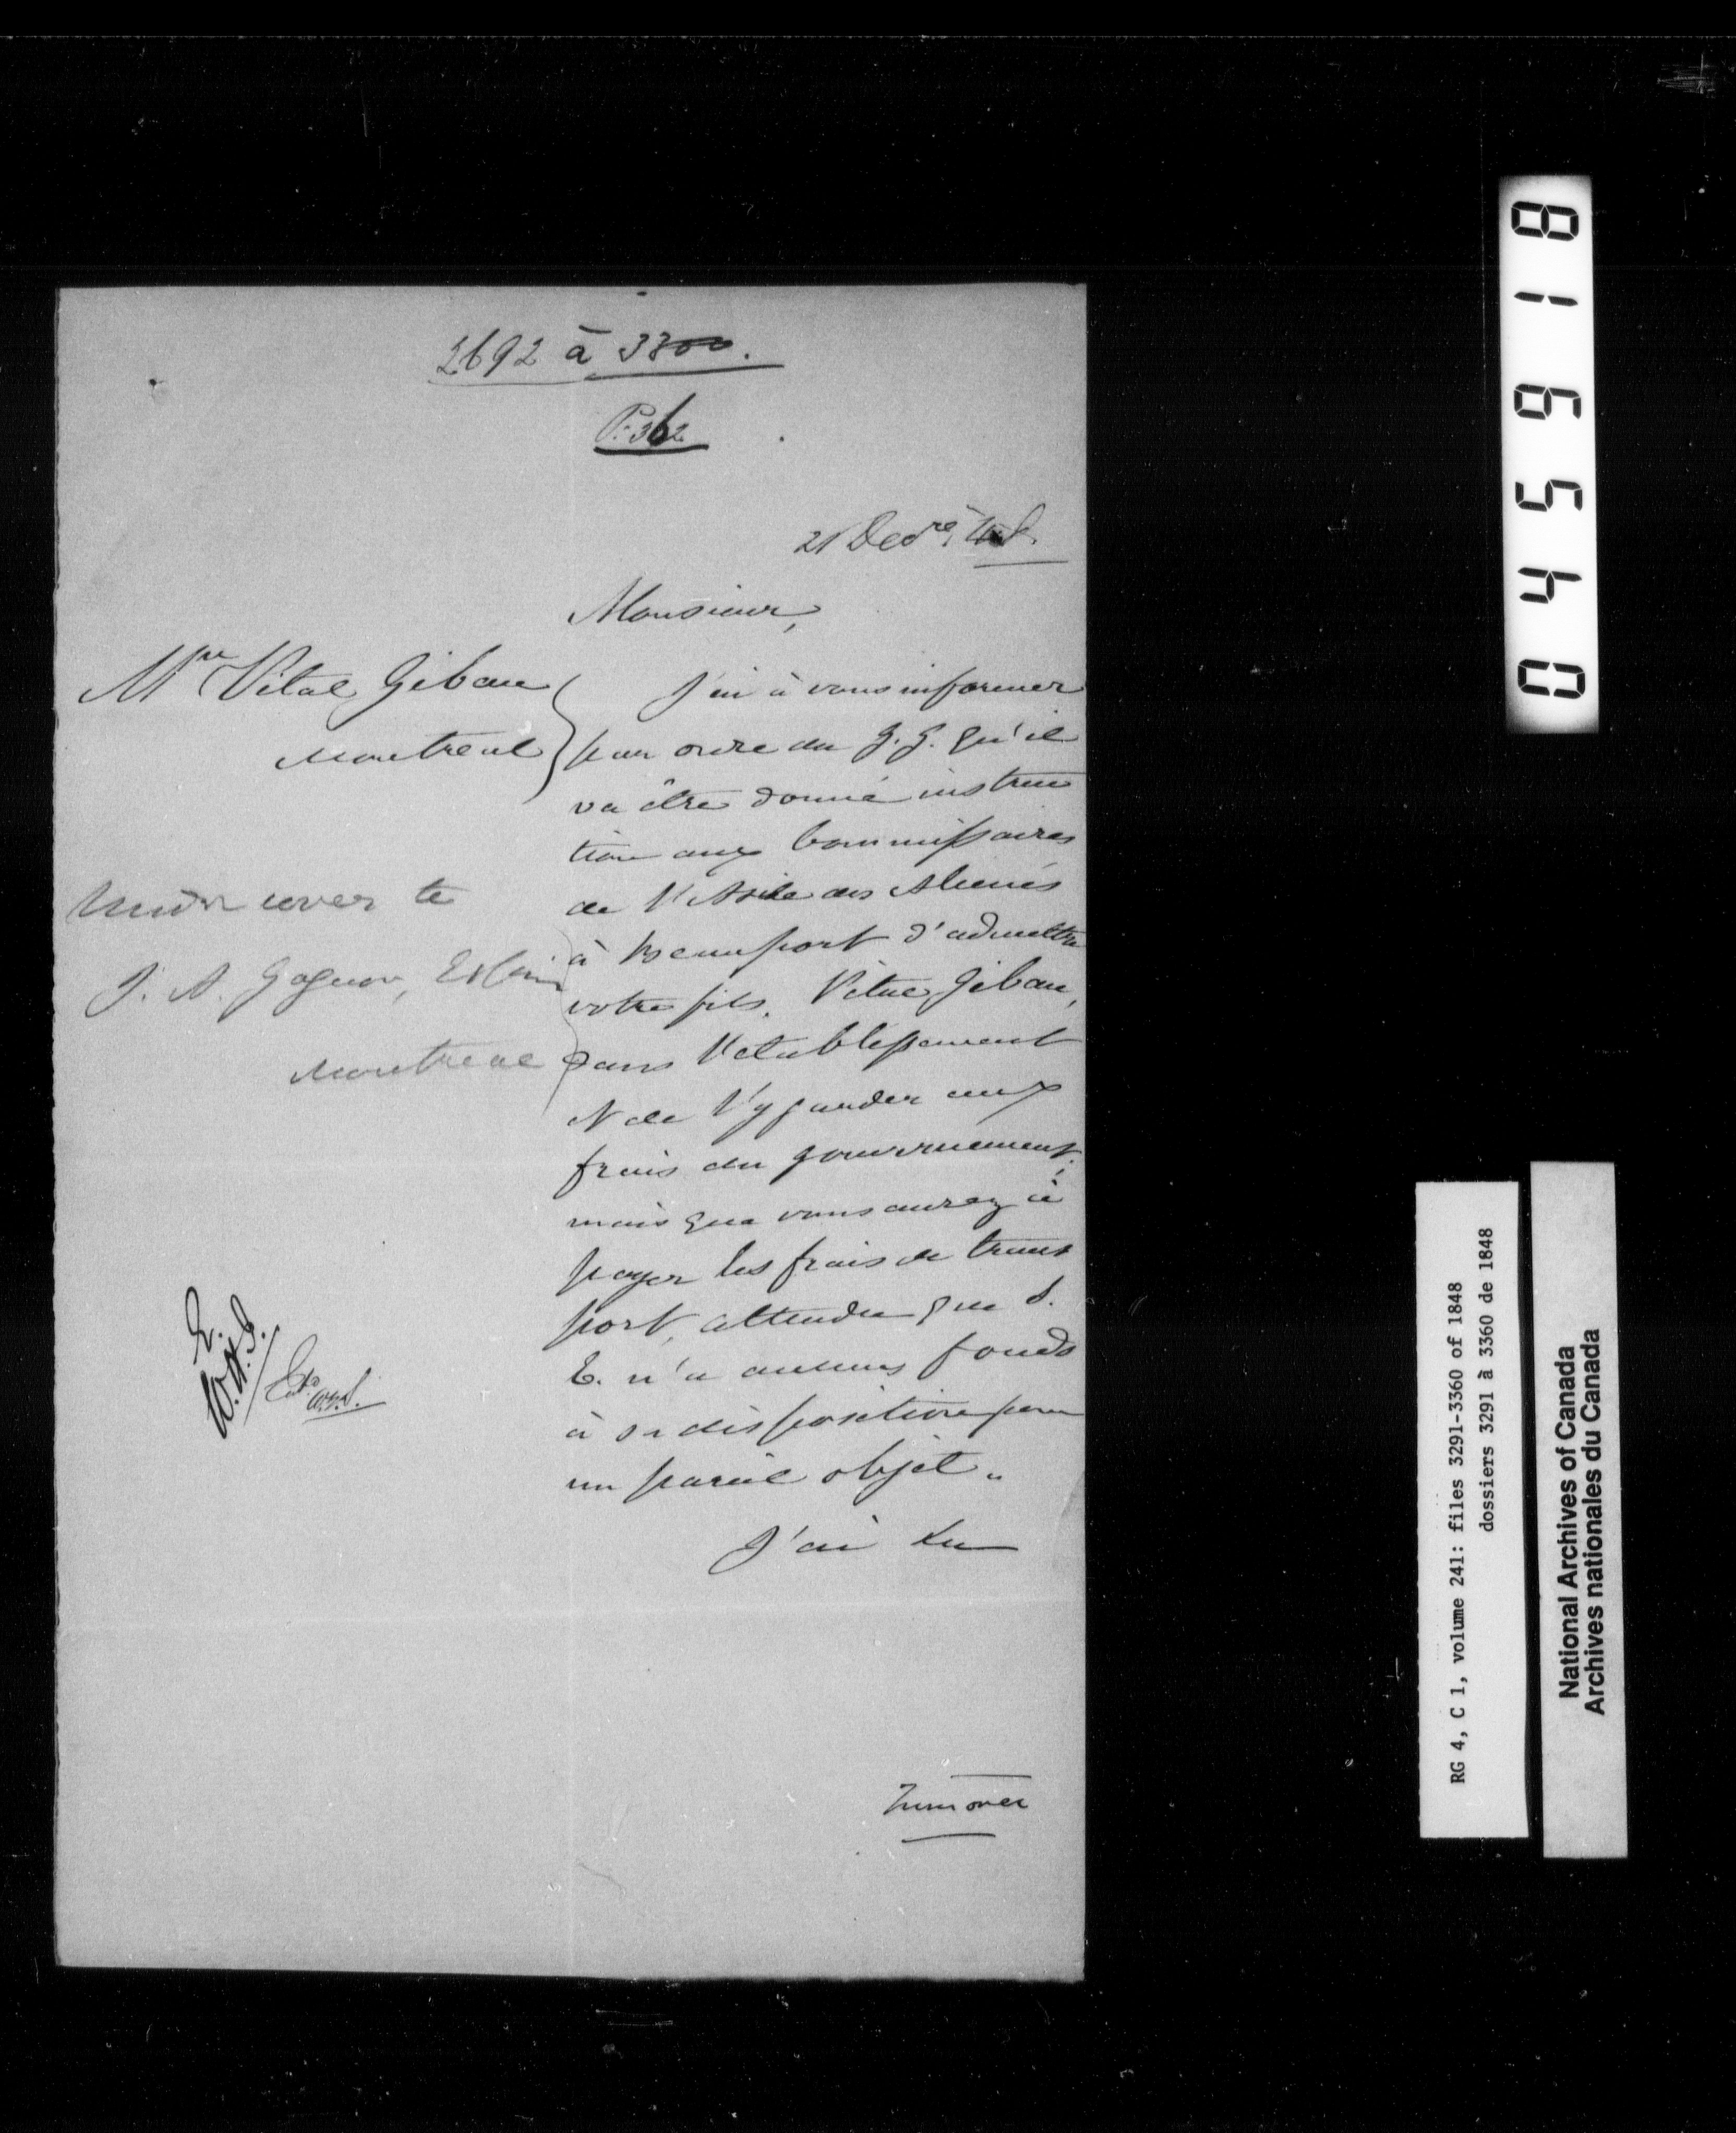 2692 à 3300.
P. 362
21 Decre, 48.
Monsieur,
Mr Vital Gibau
Montreal
J'ai à vous informer
par ordre du G. G. qu'il
va être donné instruc
tion aux Commissaires
de l'Asile des Alienés
à Beauport d'admettre
votre fils, Vital Gibau,
dans l'etablissement
et de l'y garder aux
frais du gouvernement;
mais que vous aurez à
payer les frais de trans
port, attendu que S.
E. n'a aucuns fonds
à sa disposition pour
un pareil objet.
J'ai &c
Under cover to
J. A. Gagnon,
Montreal
E.
Turn over
045918
RG 4, C 1, volume 241: files 3291-3360 of 1848
dossiers 3291 à 3360 de 1848
National Archives of Canada
Archives nationales du Canada